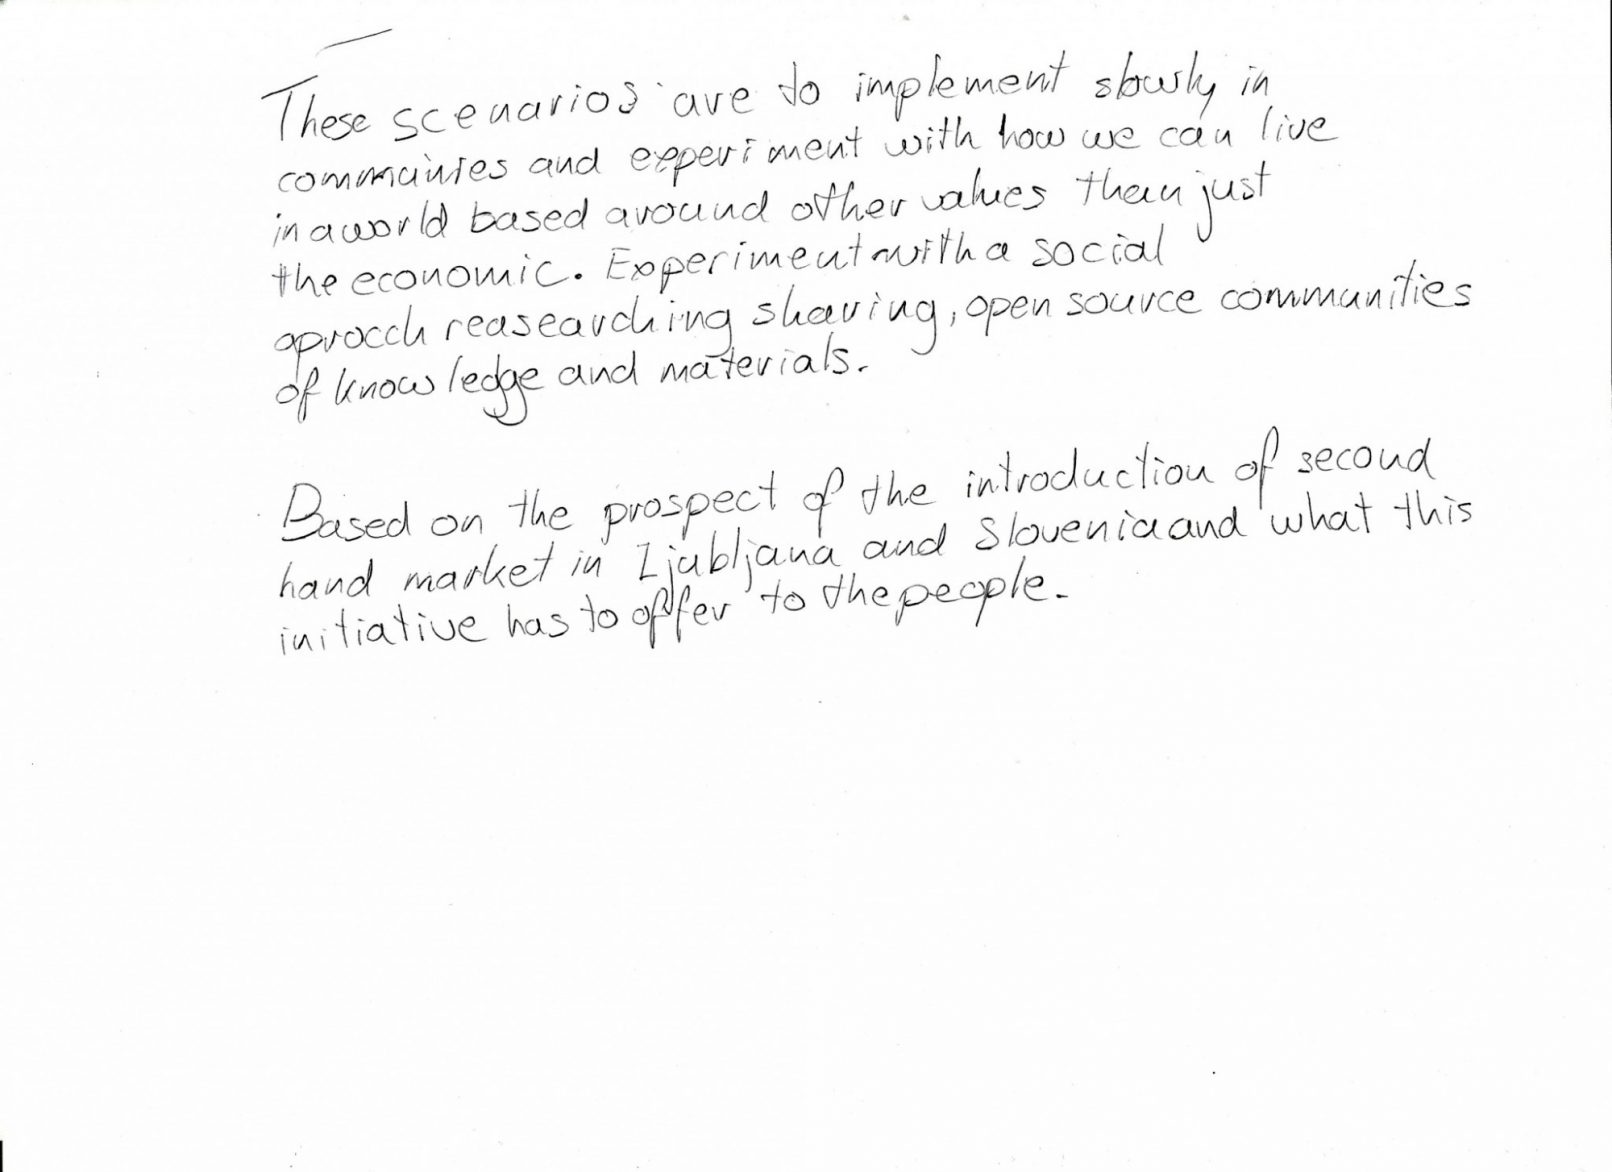 These scenarios are to implement slowly in
communires and experiment with how we can live
in a world based around other values than just
the economic. Experiment with a social
aprocch reasearching sharing, open source communities
of knowledge and materials.
Based on the prospect of the introduction of second
hand market in Ljubljana and Slovenia and what this
initiative has to offer to the people.